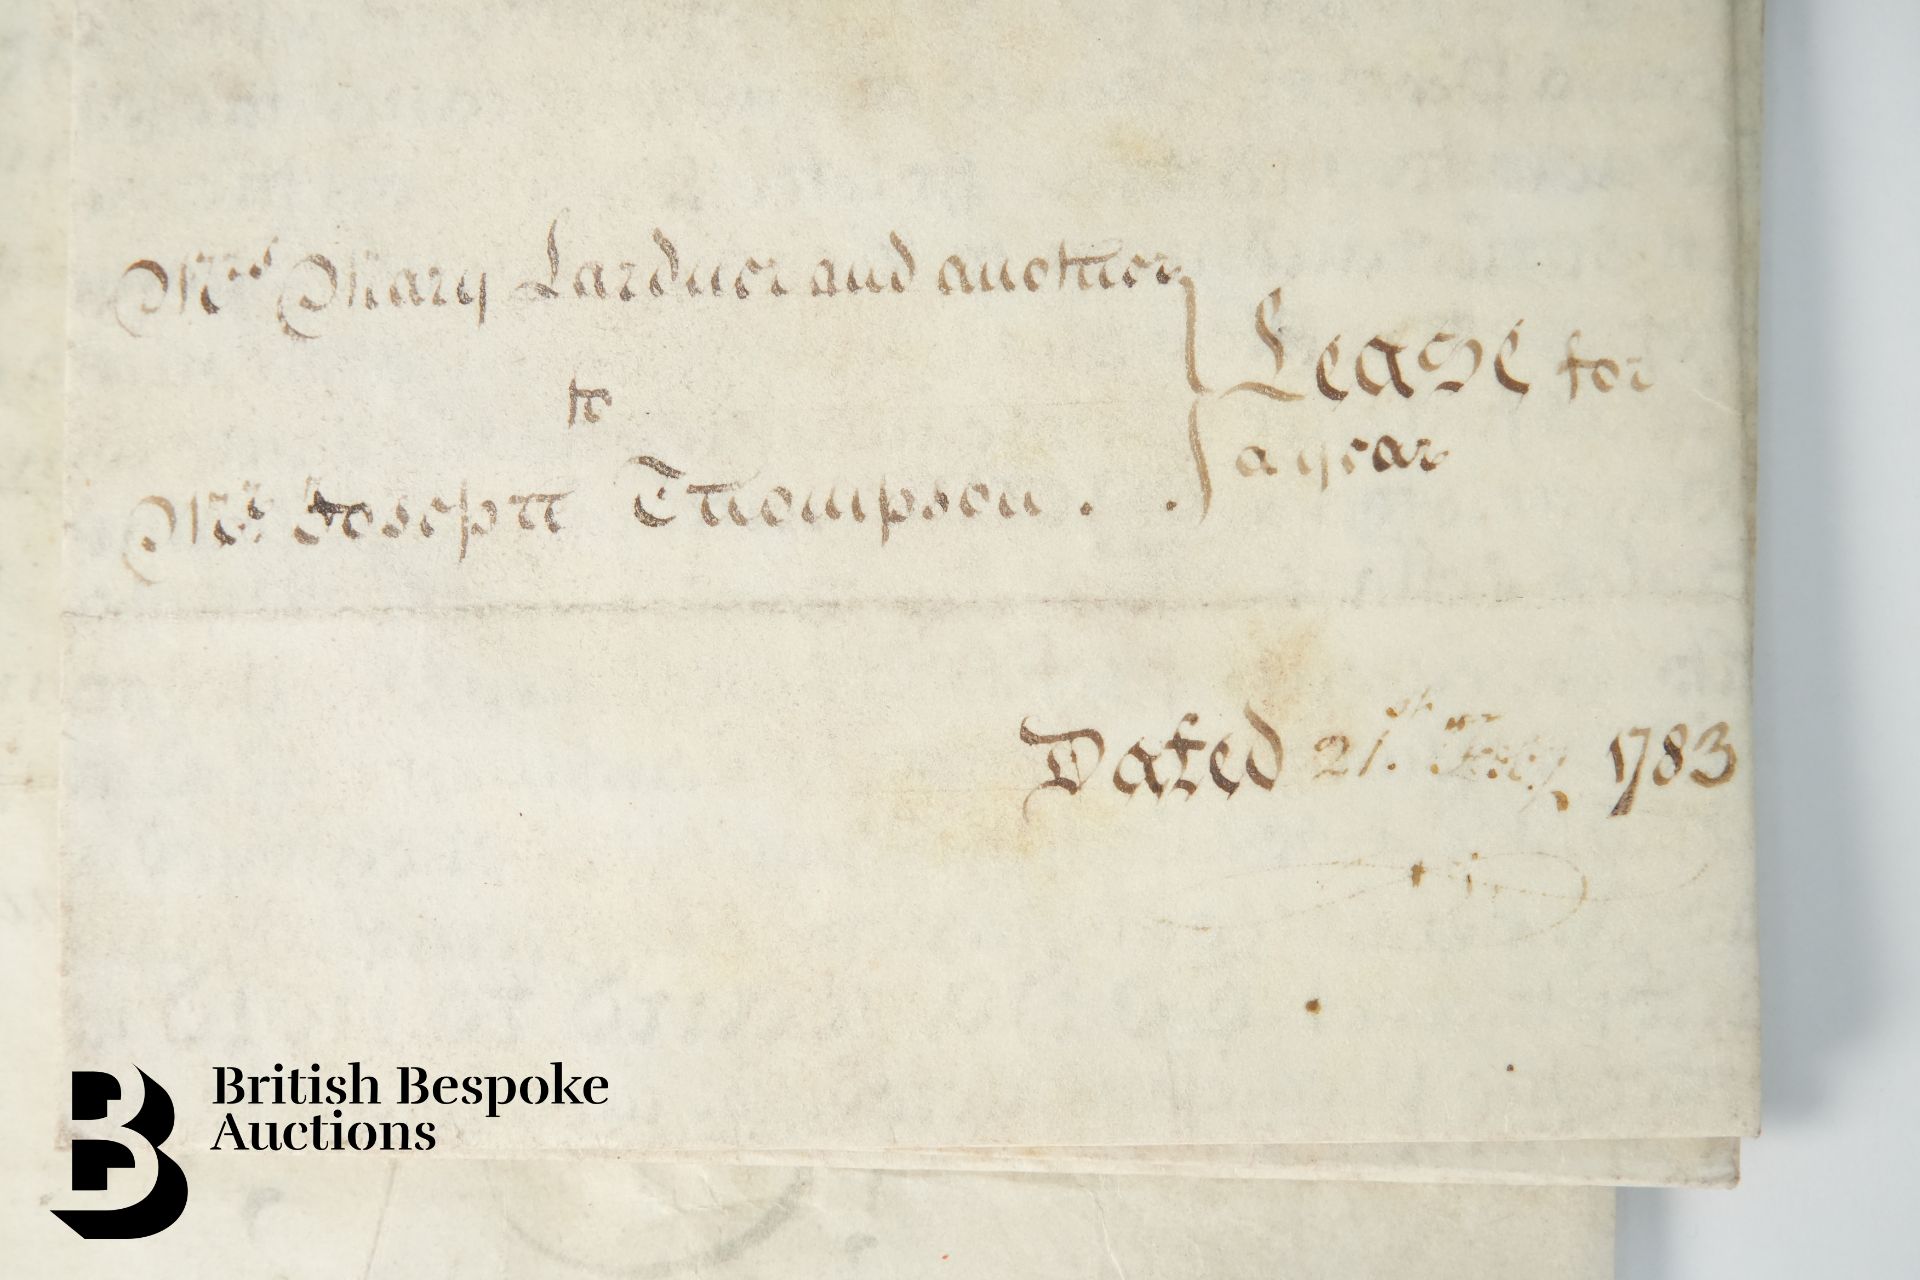 Mrs Mary Lardner and another
to
Mr Joseph Thompson.
Lease for
a year
Dated 21st Feby 1783
British Bespoke
Auctions